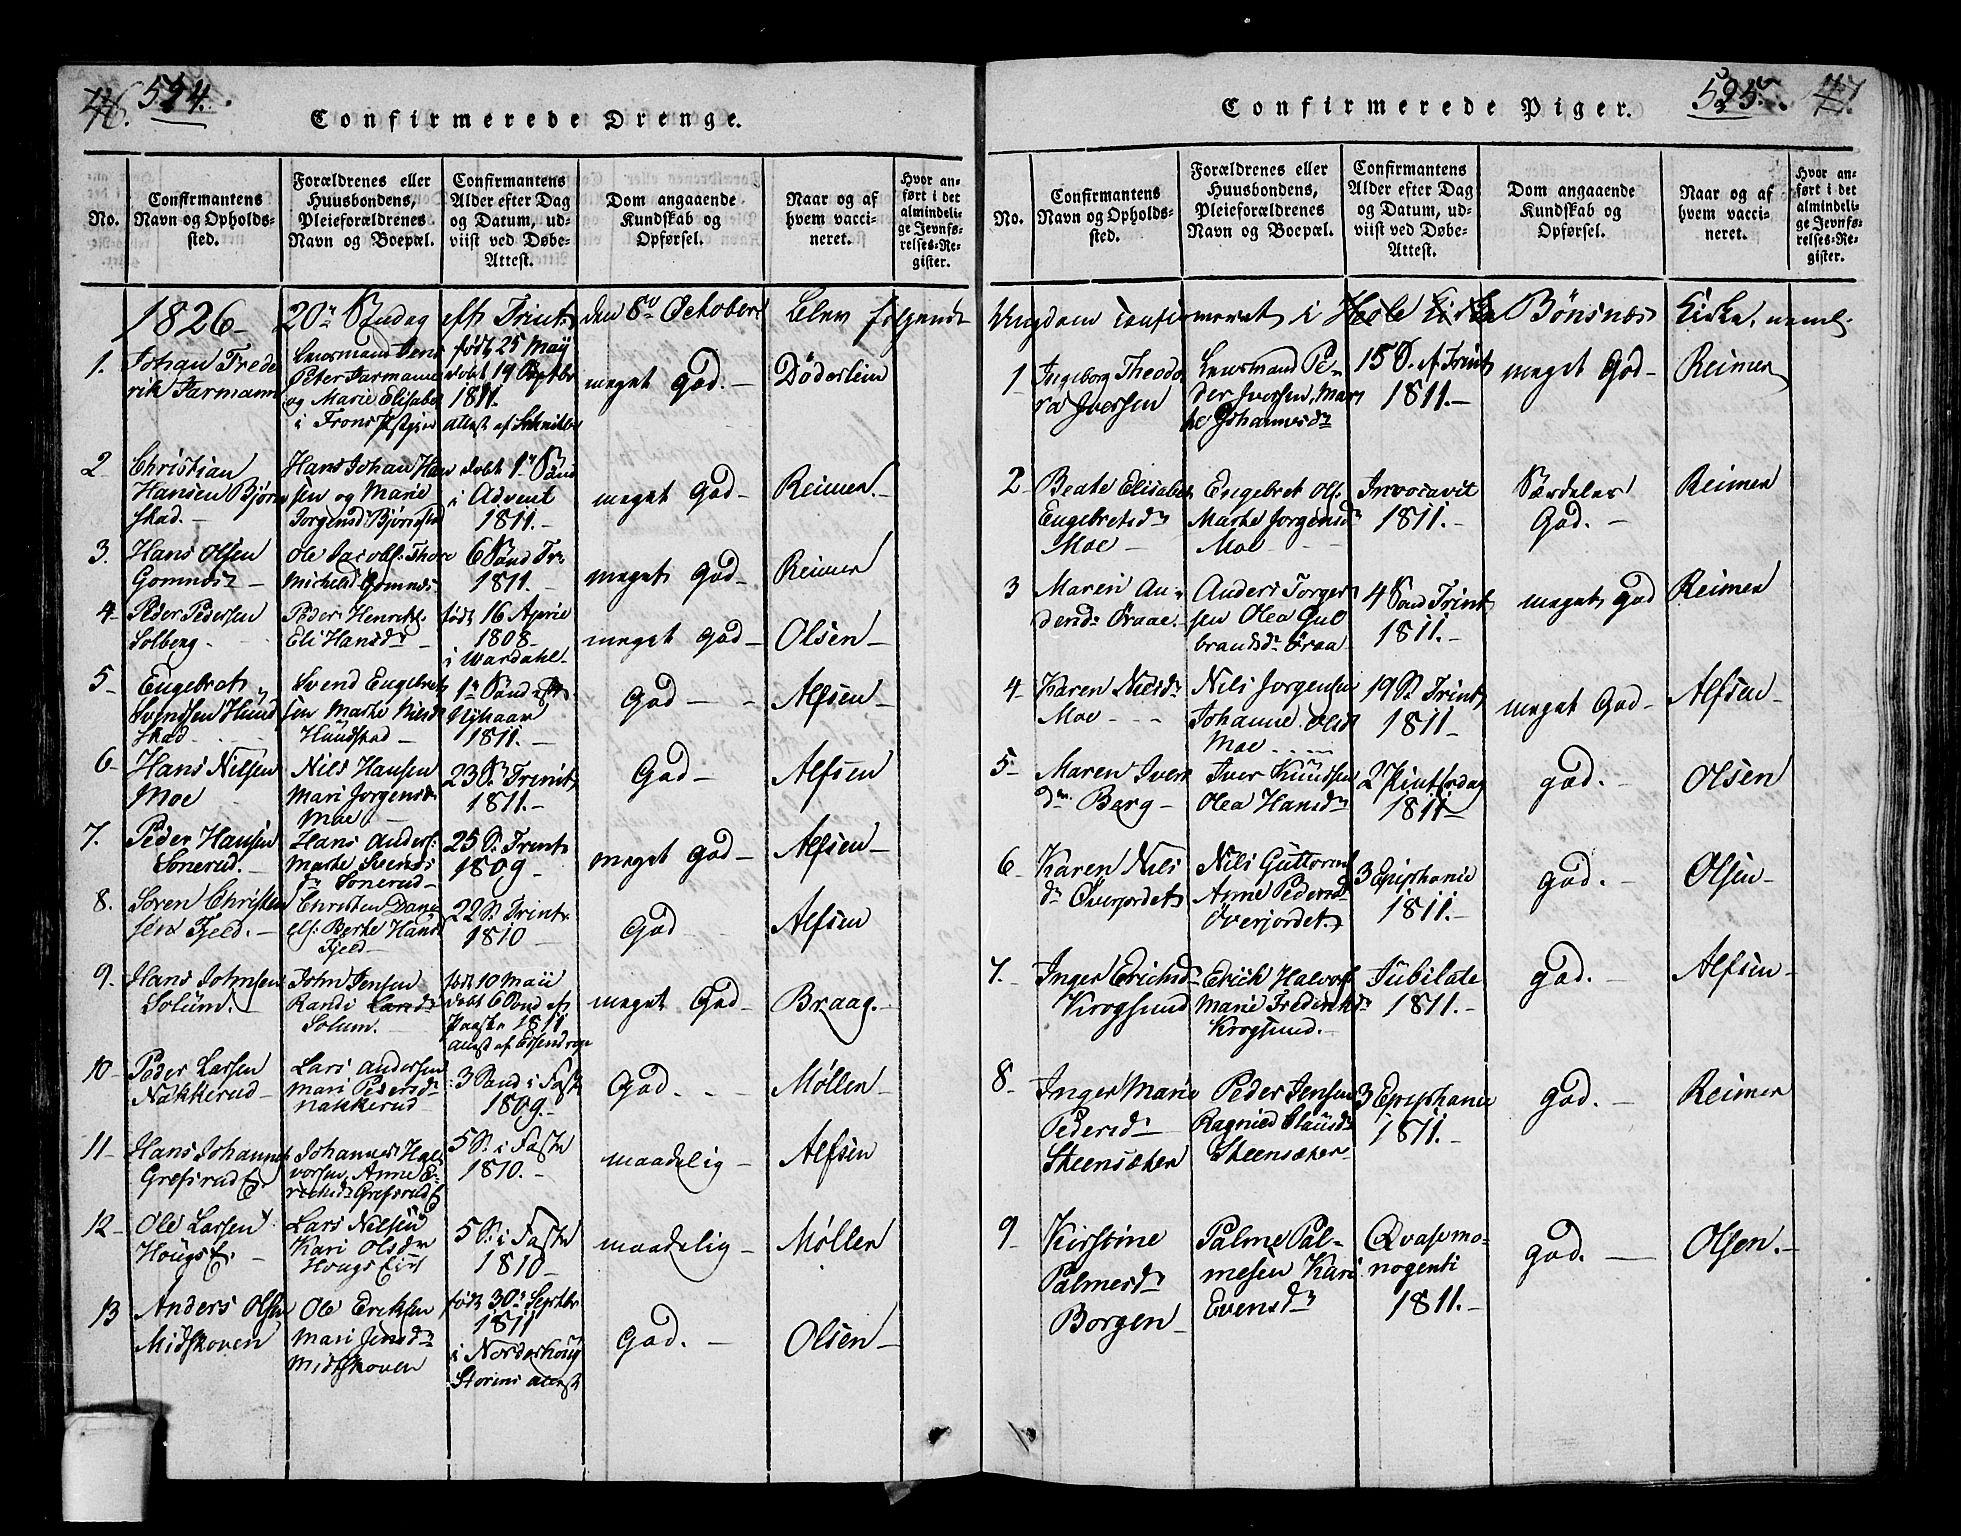 46. 594.
Confirmerede Drenge.
No.
Confirmantens
Navn og Opholds-
sted.
Forældrenes eller
Huusbondens,
Pleieforældrenes
Navn og Boepæl.
Confirmantens
Alder efter Dag
og Datum, ud-
viist ved Døbe-
Attest.
Dom angaaende
Kundskab og
Opførsel.
Naar og af
hvem vacci-
neret.
Hvor an-
ført i det
almindeli-
ge Jevnfø-
relses-Re-
gister.
1826 20de Søndag eft Trint den 8de October Blev følgende
1. Johan Frede
rik Farmann
Lensmand Jens
Peter Farmann
og Marie Elisabet
i Frons
født 25 Maii
døbt 19 Septbr
1811.
attest af
meget God. -
Döderlein
2 Christian
Hansen Bjørn
stad. -
Hans Johan Han
sen og Marie
Jorgensdr Bjørnstad
døbt 1ste Sønd
i Advent
1811. -
meget God -
Reimer. -
3. Hans Olsen
Gomnes -
Ole Jacobs: Thore
Michelsd Gomnes.
6 Sønd Tr.
1811. -
meget God -
Reimer
4 - Peder Pedersen
Solberg -
Peder Henriks.
Eli Hansdr -
født 16 Aprie
1808 -
i Wardahl -
meget God -
Olsen -
5 - Engebret
Svendsen Hund
stad -
Svend Engebret
sen Marthe Nielsd
Hundstad -
1ste Sønd eft
Nythaar
1811. -
God -
Alfsen -
6 - Hans Nilsen
Moe
Nils Hansen
Mari Jorgensdr
Moe -
23 S. Trinit
1811. -
God -
Alfsen
7. Peder Hansen
Sonerud. -
Hans Anders:
Marthe Svends
dr Sonerud -
25 S. Trint
1809 -
meget God -
Alfsen -
8. Søren Christen
sen Fjeld. -
Christen Dani
els: Berthe Hansd
Fjeld -
22 S. Trint
1810 -
God
Alfsen
9. Hans Johnsen
Solum. -
John Jensen
Randi Larsdr
Solum. -
født 10 Maii
døbt 6 Sønd eft
Paaske 1811
attest af
meget God -
Braag. -
10 - Peder Larsen
Nakkerud -
Lars Andersen
Mari Pedersdr
Nakkerud -
3 Sønd i Faste
1809 -
God. -
Møllen -
11 - Hans Johannes
Grefsrud E.
Johannes Hal
vorsen, Anne E-
richsdr Grefsrud E
5 S. i Faste
1810. -
maadelig -
Alfsen
12 - Ole Larsen
Hougs E. -
Lars Nilsen
Kari Olsdr
Hougs Eie
5 S. i Faste
1810 -
maadelig -
Møller
13 Anders Olsen
Midskoven
Ole Eriksen
Mari Jensdr
Midtskoven
født 30te Septbr
1811
i Norderhoug
Storms attest
God. -
Olsen -
Confirmerede Piger.
595. 47.
No.
Confirmantens
Navn og Opholds-
sted.
Forældrenes eller
Huusbondens,
Pleieforældrenes
Navn og Boepæl.
Confirmantens
Alder efter Dag
og Datum, ud-
viist ved Døbe-
Attest.
Dom angaaende
Kundskab og
Opførsel.
Naar og af
hvem vacci-
neret.
Hvor an-
ført i det
almindeli-
ge Jevnfø-
relses-Re-
gister.
Ungdom confirmeret i Hole Kirke Bønsnæs Kirke, neml.
1 Ingeborg Theodo
ra Iversen
Lensmand Pe-
der Iversen, Mar
the Johannesdr
15 S. A. Trint
1811. -
meget God -
Reimer
2 - Beate Elisabet
Engebretsdr
Moe -
Engebret Ols.
Marthe Jorgensdr
Moe -
Invocavit
1811. -
Særdeles
God. -
Reimer
3 Maren An-
dersdr Øraae. -
Anders Torger
sen Olea Gul
brandsdr Øraa
4 Sønd Trint
1811. -
meget God
Reimer
4 - Karen Nielsdr
Moe - - -
Nils Jorgensen
Johanne Olsd
Moe
19 S. Trint
1811 -
meget God -
Alfsen -
5 - Maren Ivers
dr. Berg -
Iver Knudsen
Olea Hansdr
2 Pintsedag
1811 -
god. -
Olsen
6 - Karen Nils
dr Överjordet
Nils Guttorms
Anne Pedersd
Överjordet
3 Epiphanie
1811. -
god. -
Olsen -
7. - Inger Erichsdr
Krogsund
Erich Halvors
Marie Frederiksdr
Krogsund. -
Jubilate
1811. -
god. -
Alfsen -
8 - Inger Marie
Pedersdr
Steensæter
Peder Jensen
Ragnild Clausdr
Steensæter -
3 Epiphanie
1811. -
god. -
Reimer
9 - Kirstine
Palmesdr
Borgen -
Palme Pal-
mesen Kari
Evensdr
Qvasimo-
nogenti
1811. -
god. -
Olsen. -